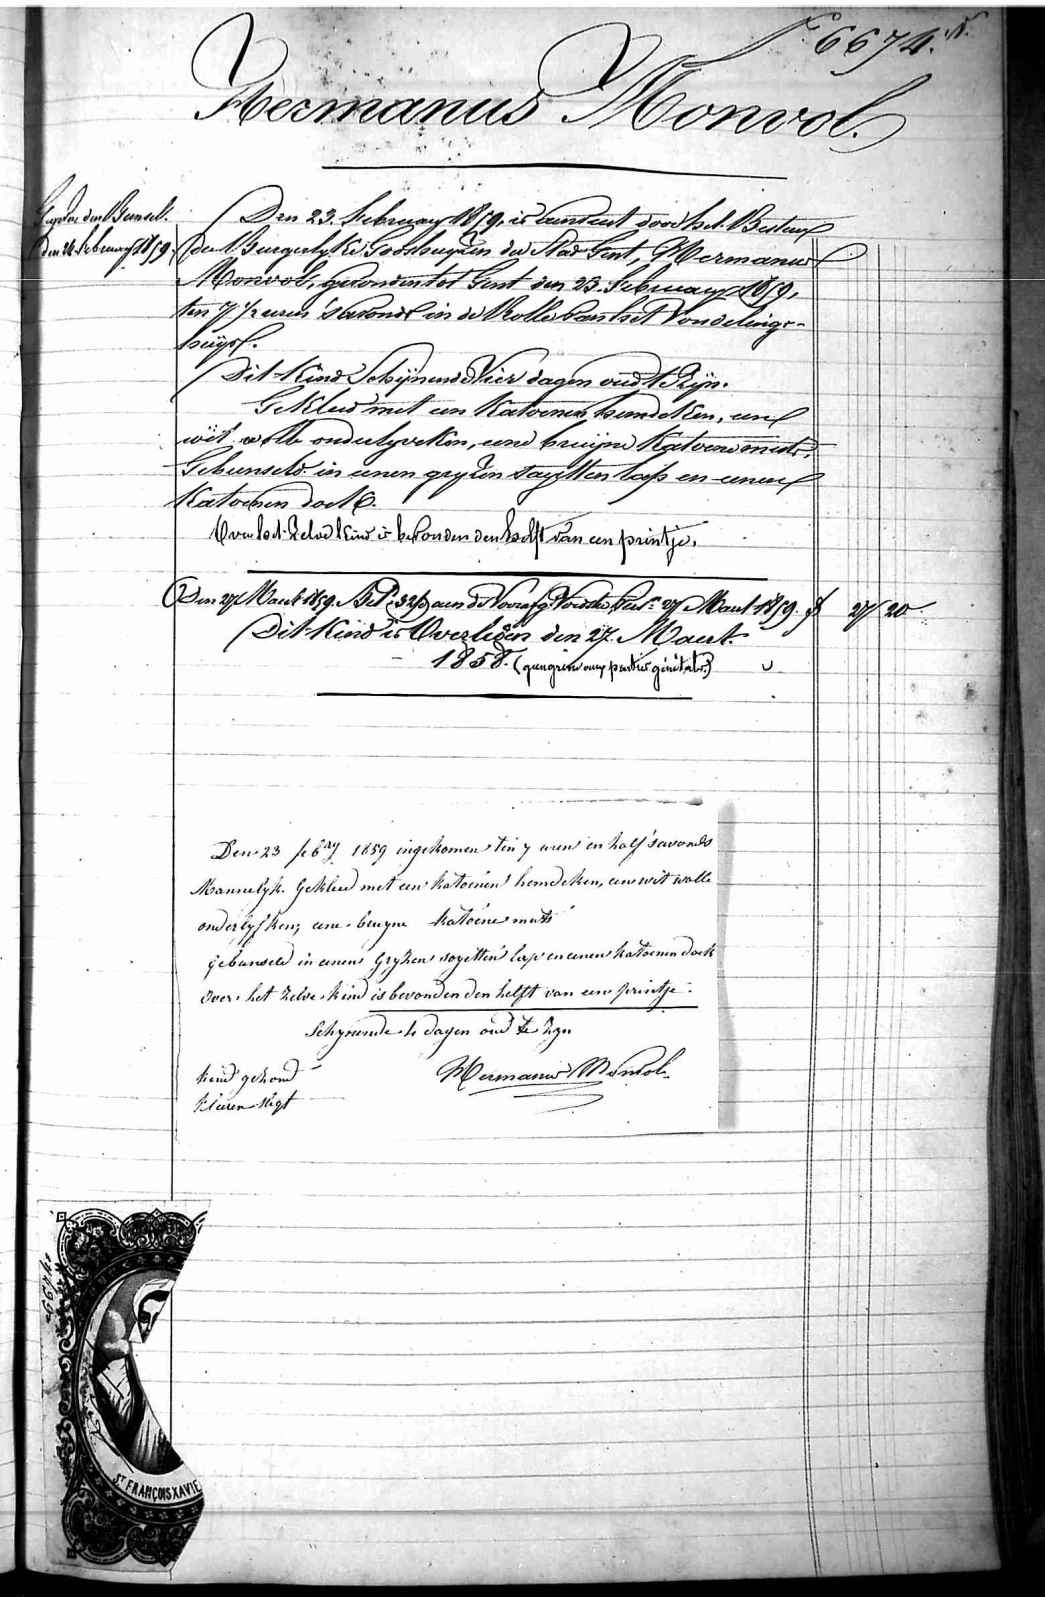 6674.
Hermanus Monvol.
den 24 February 1859.
Den 23. February 1859, is aenveerd door het Bestuur
der Burgerlyke Godshuyzen der Stad Gent, Hermanus
Monvol, gevonden tot Gent den 23. February 1859,
ten 7 1/2 euren 's avonds in de Rolle van het Vondelings-
huys.
Dit Kind Schijnende Vier dagen oud te Zijn.
Gekleed met een Katoenen hemdeken, een
wit wolle onderlyveken, eene bruijne Katoene muts.
Gebunseld in eenen gryzen sayetten lap en eenen
Katoenen doek.
Over het Zelve Kind is bevonden den helft van een printje.
Den 27 Maert 1859. aen de Voedster 27 Maert 1859. 27 20
Dit Kind is Overleden den 27. Maert.
1858. (gangrene aux parties génitales)
Den 23 feb.ry 1859 ingekomen ten 7 uren en half 's avonds
Mannelyk. Gekleed met een katoenen hemdeken, een wit wolle
onderlyfken; eene bruyne katoene muts
gebunseld in eenen Gryzen sayetten lap en eenen katoenen doek
over het zelve kind is bevonden den helft van een printje.
Schynende 4 dagen oud te zyn
kind gezond
Hermanus Monvol.
kleeren slegt
6674
ST FRANÇOIS XAVIE